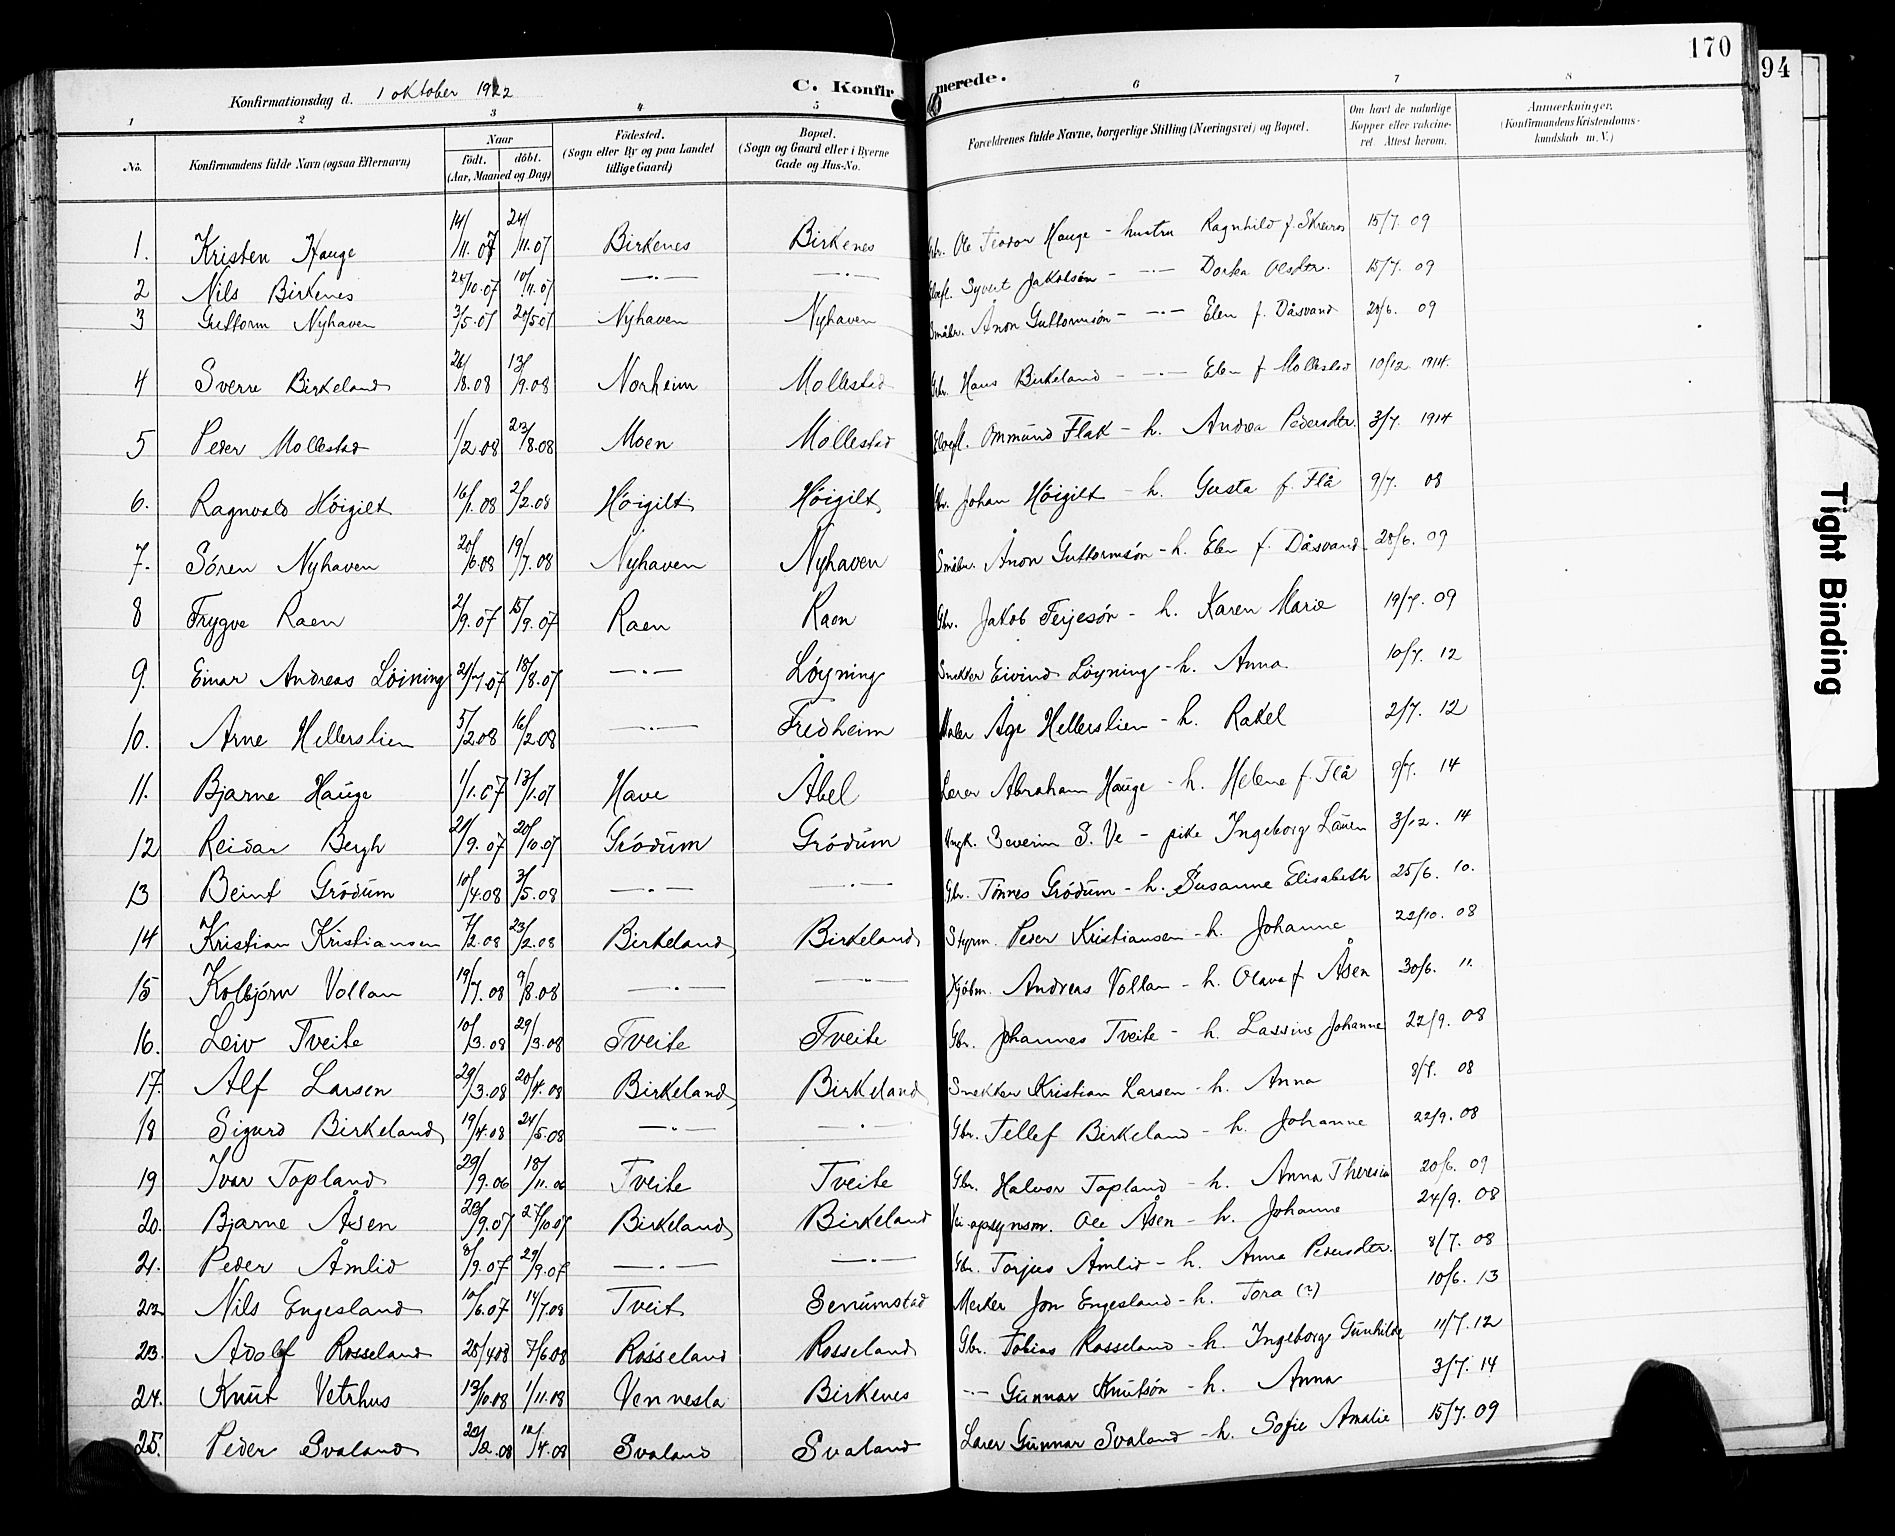 170
94
Konfirmationsdag d. 1 oktober 1922
C. Konfirmerede.
1 2 3 4 5 6 7 8
No.
Konfirmandens fulde Navn (ogsaa Efternavn)
Naar
født. døbt.
(Aar, Maaned og Dag)
Fødested.
(Sogn eller By og paa Landet
tillige Gaard)
Bopæl.
(Sogn og Gaard eller i Byerne
Gade og Hus-No.
Forældrenes fulde Navne, borgerlige Stilling (Næringsvei) og Bopæl.
Om havt de naturlige
Kopper eller vakcine-
ret Attest herom.
Anmærkninger.
(Konfirmandens Kristendoms-
kundskab m. V.)
1. Kristen Hauge 14/11.07 24/11.07 Birkenes Birkenes Gbr. Ole Teodor Hauge - hustru Ragnhild f. Skreros 15/7 09
2 Nils Birkenes 25/10.07 10/11.07 —·— —·— Syvert Jakobsøn - —·— Dorka Olsdtr. 15/7. 09
3 Guttorm Nyhaven 3/5.07 20/5 07 Nyhaven Nyhaven Småbr. Ånon Guttormsøn - —·— Elen f. Dåsvand 28/6. 09
4 Sverre Birkeland 26/8.08 13/9.08 Norheim Mollestad Gbr. Hans Birkeland - —·— Elen f Mollestad 10/12. 1914.
5 Peder Mollestad 1/2.08 23/8.08 Moen Mollestad Ommund Flak - h. Andrea Pedersdtr. 3/7. 1914
6. Ragnvald Høigilt 16/1.08 2/2.08 Høigilt Høigilt Gbr. Johan Høigilt - h. Gusta f. Flå 9/7. 08
7. Søren Nyhaven 20/6.08 19/7.08 Nyhaven Nyhaven Småbr. Ånon Guttormsøn - h. Elen f. Dåsvand 28/6. 09
8 Trygve Raen 2/9.07 15/9.07 Raen Raen Gbr. Jakob Terjesøn - h. Karen Marie 19/7. 09
9. Einar Andreas Løining 21/7.07 18/8.07 —·— Løyning Snekker Eivind Løyning - h. Anna. 10/7. 12
10. Arne Hellerslien 5/2.08 16/2.08 —·— Fredheim Maler Åge Hellerslien - h. Rakel 2/7. 12
11. Bjarne Hauge 1/1.07 13/1.07 Have Åbel Lærer Abraham Hauge - h. Helene f. Flå 9/7. 14
12 Reidar Bergh 21/9.07 20/10.07 Grødum Grødum Ungk. Severin S. Ve - pike Ingeborg Lauen 3/12. 14
13 Beint Grødum 10/4.08 3/5.08 —·— —·— Gbr. Tønnes Grødum - h. Susanne Elisabeth 25/6. 10.
14 Kristian Kristiansen 7/2.08 23/2.08 Birkeland Birkeland Styrm. Peder Kristiansen - h. Johanne 22/10. 08
15 Kolbjørn Vollan 19/7.08 9/8.08 —·— —·— Kjøbm. Andreas Vollan - h. Olava f Åsen 30/6. 11.
16. Leiv Tveite 10/3.08 29/3.08 Tveite Tveite Gbr. Johannes Tveite - h. Lassine Johanne 22/9. 08
17. Alf Larsen 29/3.08 20/4.08 Birkeland Birkeland Snekker Kristian Larsen - h. Anna 8/7. 08
18 Sigurd Birkeland 19/4.08 24/5.08 —·— —·— Gbr. Tellef Birkeland - h. Johanne 22/9. 08
19 Ivar Topland 29/9.06 18/11.06 Tveite Tveite Gbr. Halvor Topland - h. Anna Theresia 20/6. 09
20. Bjarne Åsen 28/9.07 27/10.07 Birkeland Birkeland Vei-opsynsm. Ole Åsen - h. Johanne 24/9. 08
21. Peder Åmlid 8/9.07 29/9.07 —·— —·— Gbr. Torjus Åmlid - h. Anna Pedersdtr. 8/7. 08
22 Nils Engesland 10/6.07 14/7.08 Tveit Senumstad Merker Jon Engesland - h. Tora (?) 10/6. 13
23. Adolf Rosseland 25/4 08 7/6.08 Rosseland Rosseland Gbr. Tobias Rosseland - h. Ingeborg Gunhilde 11/7. 12
24. Knut Vetrhus 13/10.08 1/11.08 Vennesla Birkenes —·— Gunnar Knutsøn - h. Anna 3/7. 14
25. Peder Svaland 20/2.08 12/4.08 Svaland Svaland Lærer Gunnar Svaland - h. Sofie Amalie 15/7. 09
Tight Binding